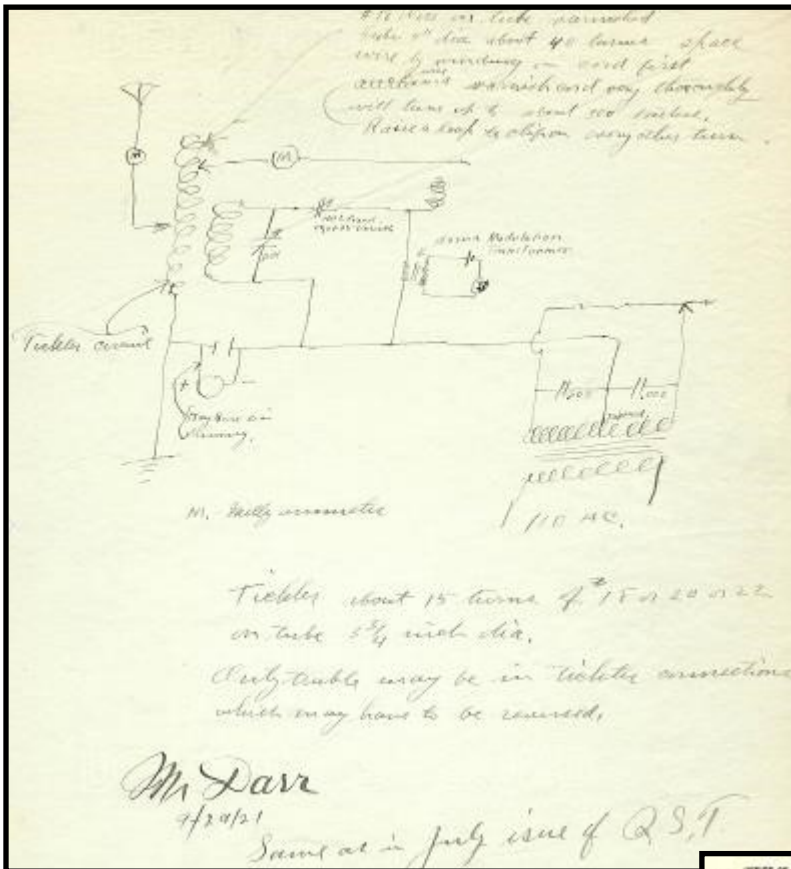 #16 wire on tube varnished
tube " dia about 40 turns space
wire by winding on cord first
varnish and dry thoroughly
will tune up to about 200 meters.
Raise a loop to clip on every other turn.
M
M
.001
Modulation
Transformer
Tickler circuit
+ -
M. Milly ammeter
110 AC.
Tickler about 15 turns of #18 or 20 or 22
on tube 5 3/4 inch dia.
Only trouble may be in tickler connections
which may have to be reversed.
Mr Darr
9/29/21
Same as in July issue of Q.S.T.